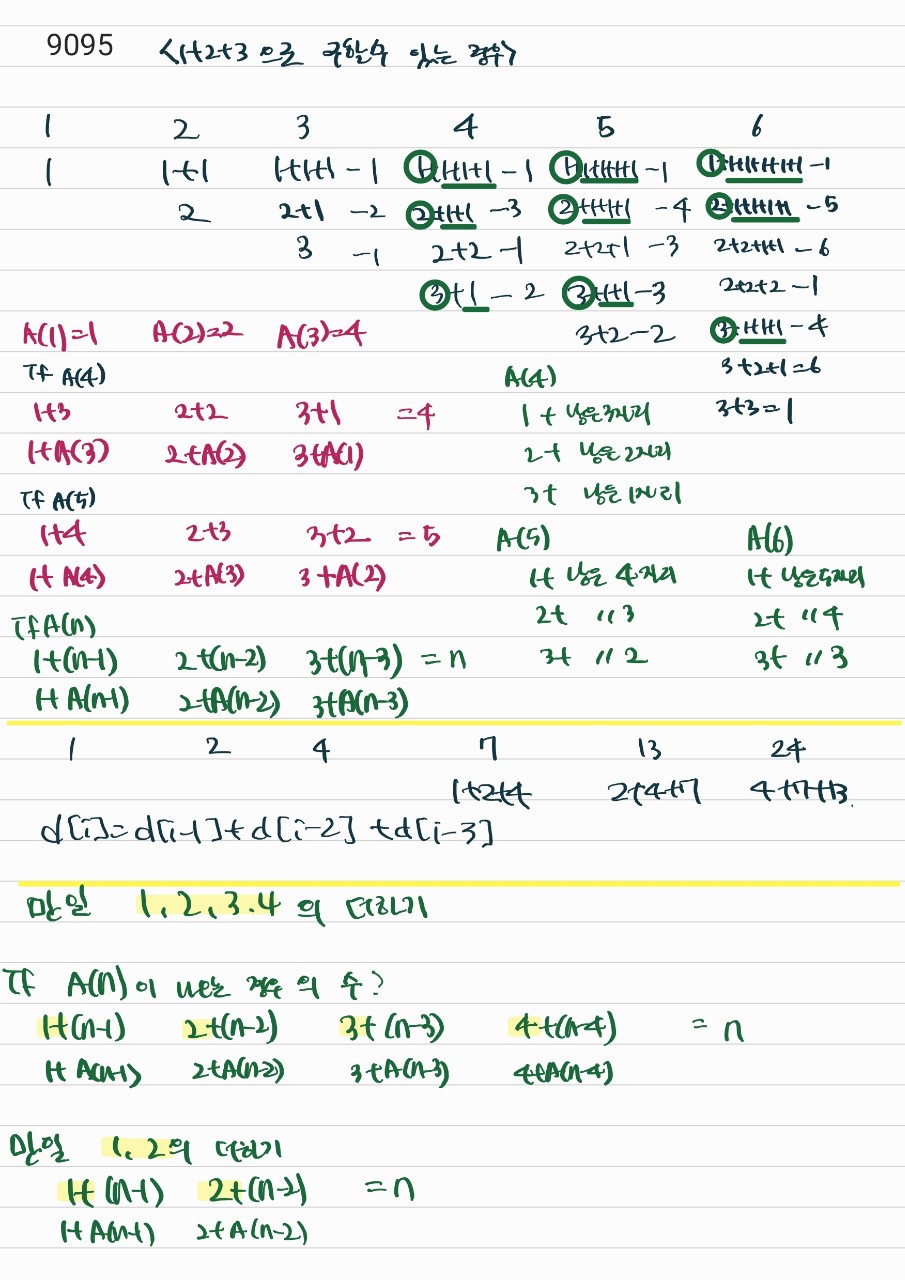 9095 <1+2+3 으로 구할수 있는 경우>
1 2 3 4 5 6
1 1+1 1+1+1 - 1 1+1+1+1 - 1 1+1+1+1+1 - 1 1+1+1+1+1+1 - 1
2 2+1 - 2 2+1+1 - 3 2+1+1+1 - 4 2+1+1+1+1 - 5
3 - 1 2+2 - 1 2+2+1 - 3 2+2+1+1 - 6
3+1 - 2 3+1+1 - 3 2+2+2 - 1
A(1)=1 A(2)=2 A(3)=4 3+2 - 2 3+1+1+1 - 4
If A(4) A(4) 3+2+1=6
1+3 2+2 3+1 =4 1+ 남은 3자리 3+3=1
1+A(3) 2+A(2) 3+A(1) 2+ 남은 2자리
If A(5) 3+ 남은 1자리
1+4 2+3 3+2 = 5 A(5) A(6)
1+ A(4) 2+A(3) 3+A(2) 1+ 남은 4자리 1+ 남은 5자리
If A(n) 2+ 〃 3 2+ 〃 4
1+(n-1) 2+(n-2) 3+(n-3) = n 3+ 〃 2 3+ 〃 3
1+ A(n-1) 2+A(n-2) 3+A(n-3)
1 2 4 7 13 24
1+2+4 2+4+7 4+7+13.
d[i]=d[i-1]+d[i-2]+d[i-3]
만일 1, 2, 3. 4 의 더하기
If A(n)이 나오는 경우 의 수?
1+(n-1) 2+(n-2) 3+(n-3) 4+(n-4) = n
1+ A(n-1) 2+A(n-2) 3+A(n-3) 4+A(n-4)
만일 1, 2의 더하기
1+(n-1) 2+(n-2) = n
1+A(n-1) 2+A(n-2)